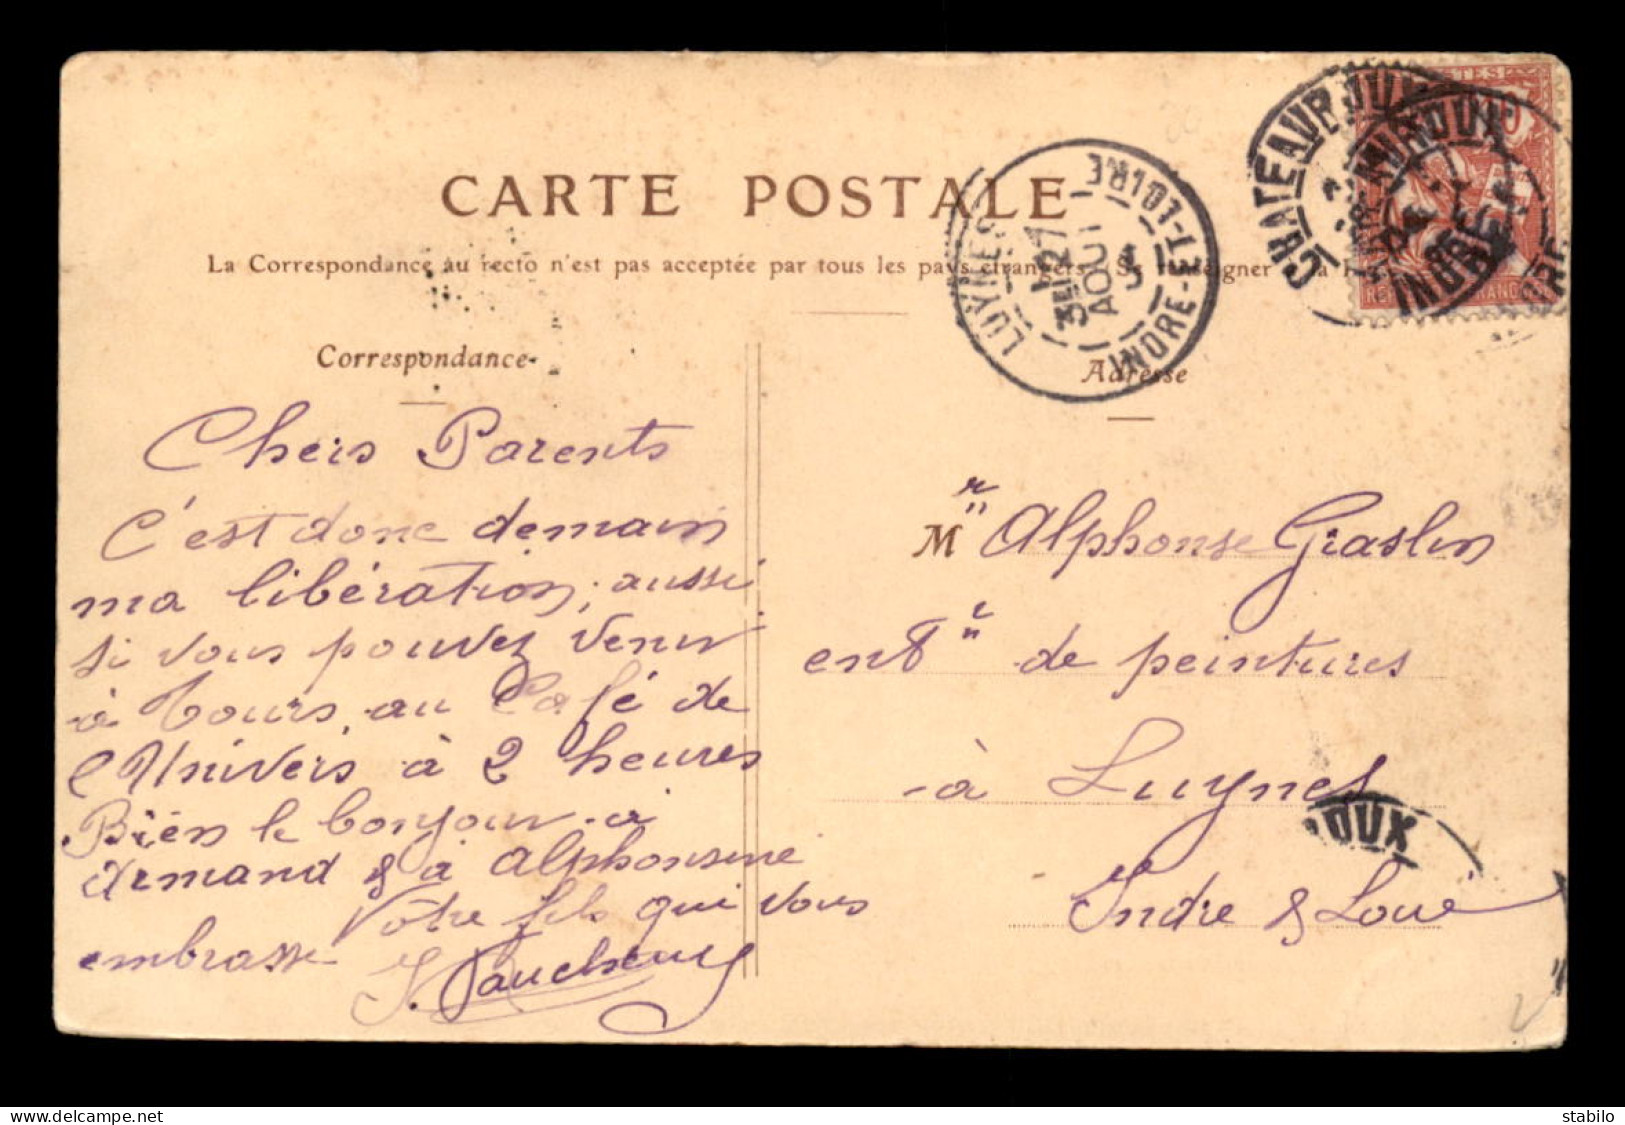 CARTE POSTALE
La Correspondance au recto n'est pas acceptée par tous les pays étrangers. Se renseigner à la
Correspondance
Adresse
LUYNES
INDRE-ET-LOIRE
27
AOUT
04
CHATEAUROUX
INDRE
POSTES
10
OUX
Chers Parents
C'est donc demain
ma libération, aussi
si vous pouvez venir
à Tours au Café de
l'Univers à 2 heures
Bien le bonjour à
Armand & à Alphonsine
Votre fils qui vous
embrasse
Mr Alphonse Graslin
entr de peintures
à Luynes
Indre & Loire
stabilo